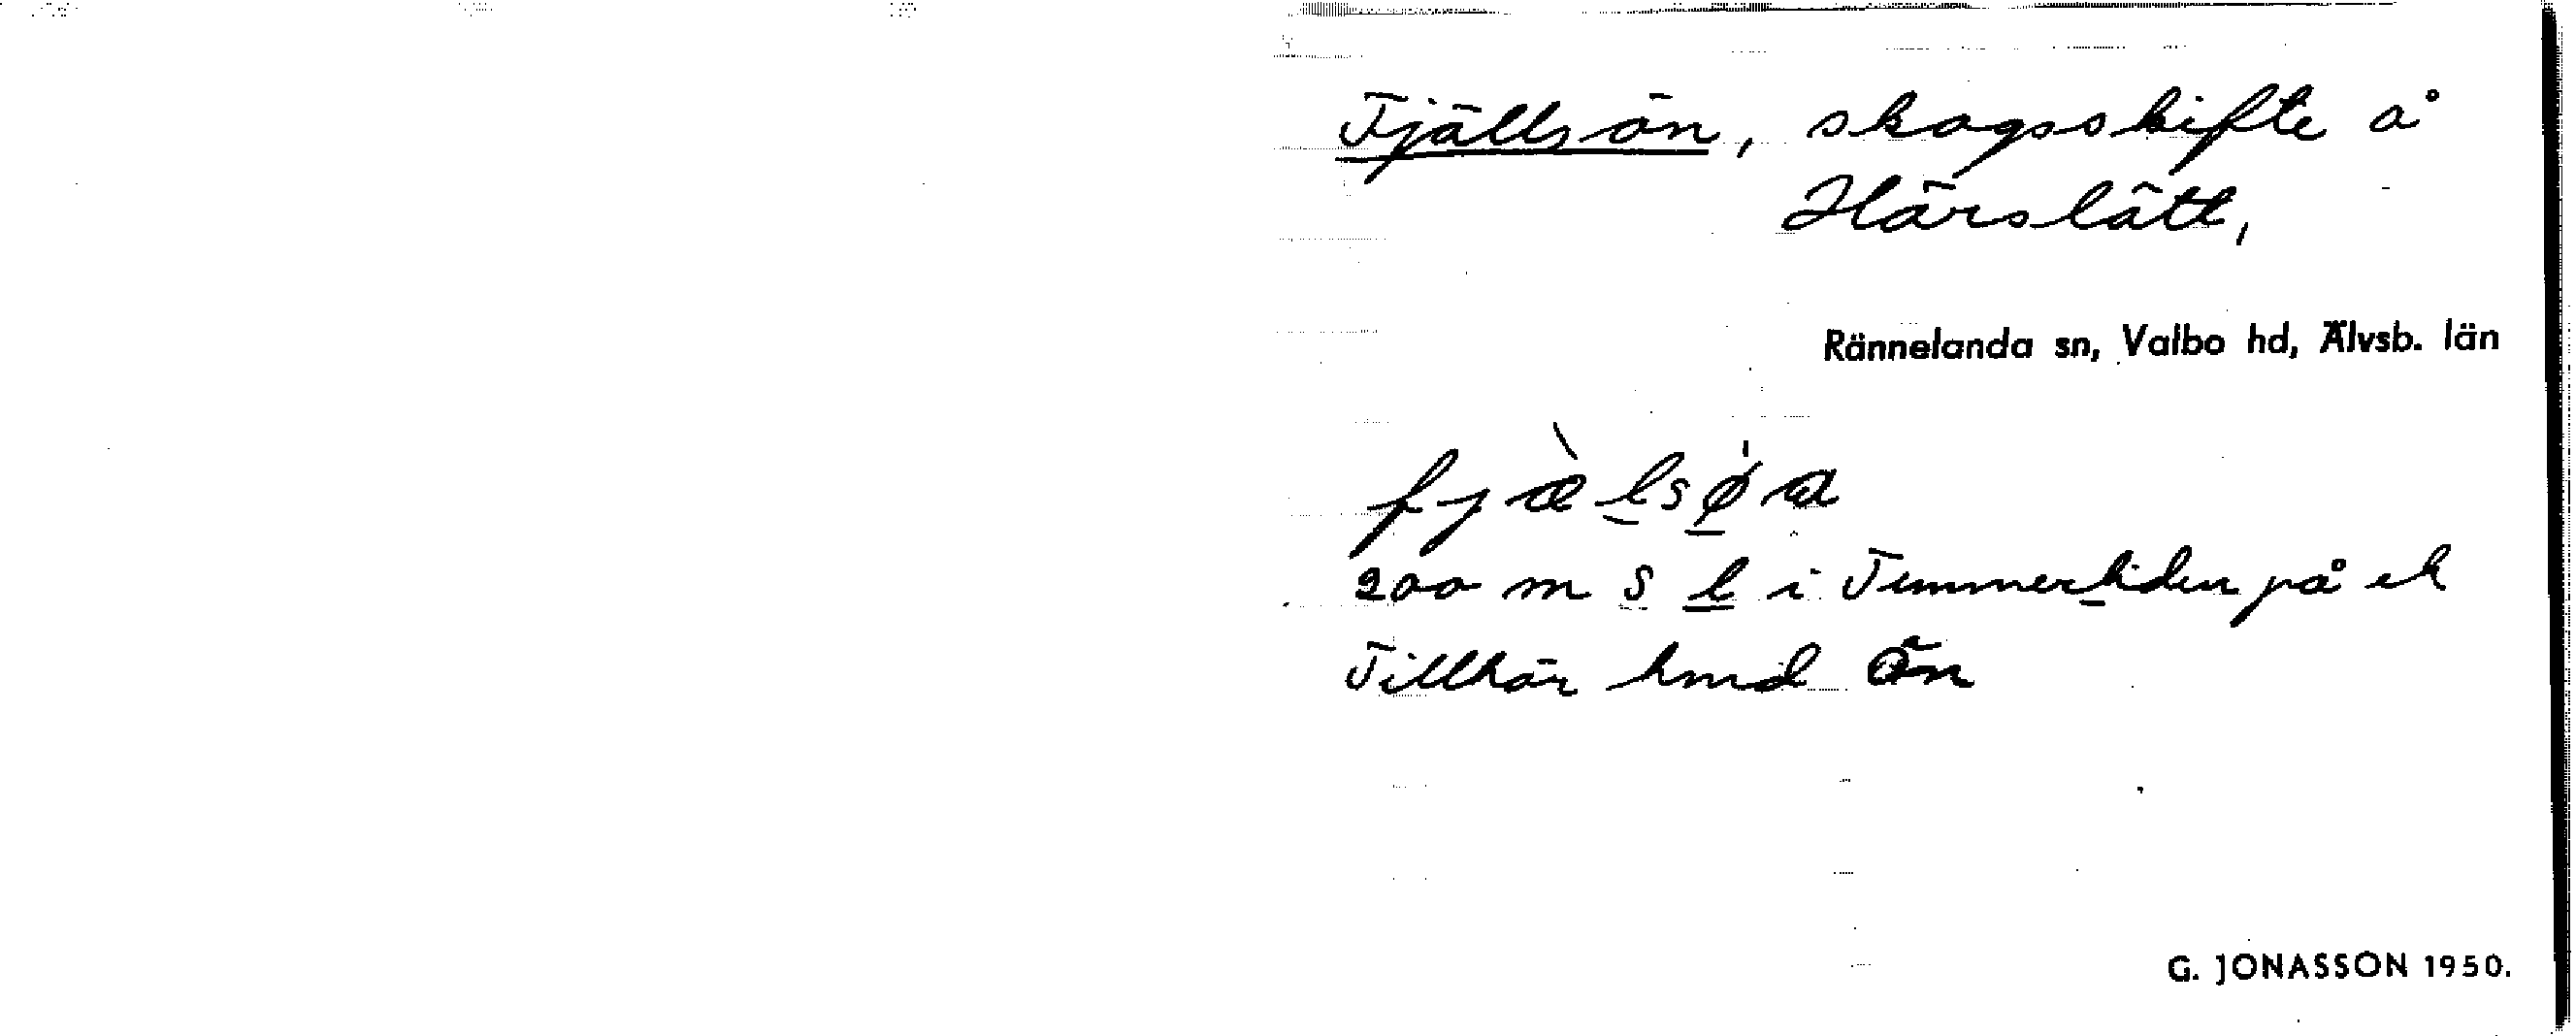 Fjällsön, skogsskifte å
Härslätt,
Rännelanda sn, Valbo hd, Älvsb. län
fjæ̀lsǿa
200 m S l i Timmerliden på ek
Tillhör hmd Ön
G. JONASSON 1950.